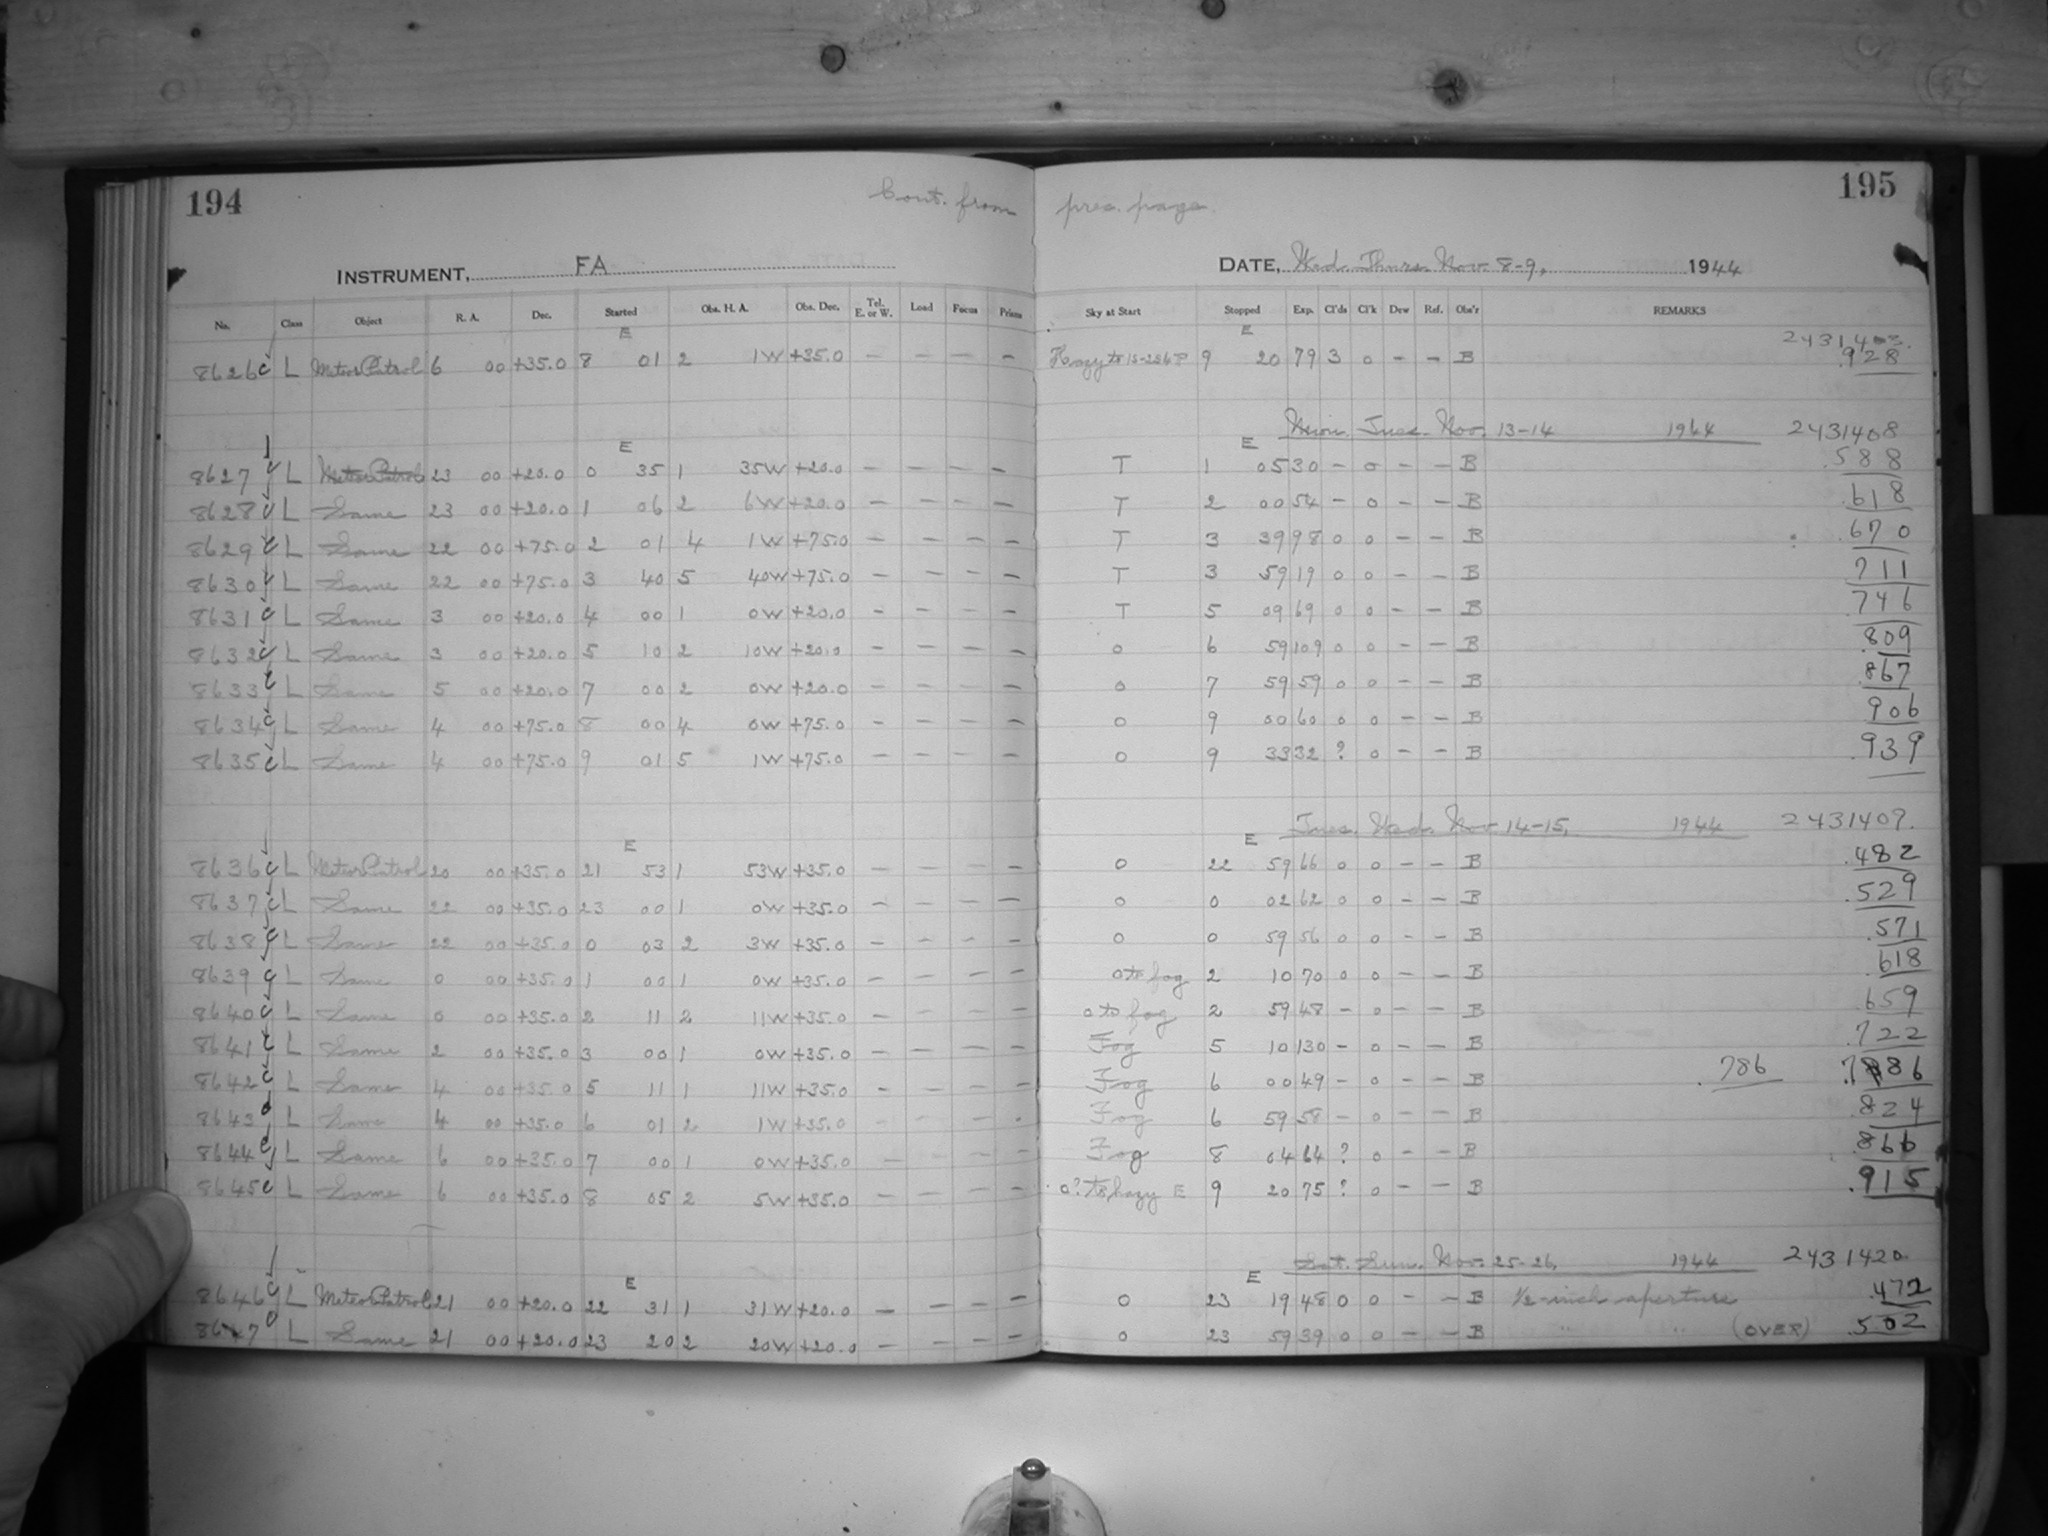 194
Cont. from prec. page
195
INSTRUMENT, FA
DATE, Wed. Thurs. Nov. 8-9, 1944
No. Class Object R. A. Dec. Started Obs. H. A. Obs. Dec. Tel. E. or W. Load Focus Prism Sky at Start Stopped Exp. Cl'ds Cl'k Dew Ref. Obs'r REMARKS
E E 2431403.
8626 c L Meteor Patrol 6 00 +35.0 8 01 2 1W +35.0 – – – – Hazy to 9 20 79 3 0 – – B .928
E E Mon. Tues. Nov. 13-14 1944 2431408
8627 c L Meteor Patrol 23 00 +20.0 0 35 1 35W +20.0 – – – – T 1 05 30 – 0 – – B .588
8628 c L Same 23 00 +20.0 1 06 2 6W +20.0 – – – – T 2 00 54 – 0 – – B .618
8629 c L Same 22 00 +75.0 2 01 4 1W +75.0 – – – – T 3 39 98 0 0 – – B .670
8630 c L Same 22 00 +75.0 3 40 5 40W +75.0 – – – – T 3 59 19 0 0 – – B .711
8631 c L Same 3 00 +20.0 4 00 1 0W +20.0 – – – – T 5 09 69 0 0 – – B .746
8632 c L Same 3 00 +20.0 5 10 2 10W +20.0 – – – – 0 6 59 109 0 0 – – B .809
8633 c L Same 5 00 +20.0 7 00 2 0W +20.0 – – – – 0 7 59 59 0 0 – – B .867
8634 c L Same 4 00 +75.0 8 00 4 0W +75.0 – – – – 0 9 00 60 0 0 – – B .906
8635 c L Same 4 00 +75.0 9 01 5 1W +75.0 – – – – 0 9 33 32 ? 0 – – B .939
E E Tues. Wed. Nov 14-15, 1944 2431409.
8636 c L Meteor Patrol 20 00 +35.0 21 53 1 53W +35.0 – – – – 0 22 59 66 0 0 – – B .482
8637 c L Same 22 00 +35.0 23 00 1 0W +35.0 – – – – 0 0 02 62 0 0 – – B .529
8638 c L Same 22 00 +35.0 0 03 2 3W +35.0 – – – – 0 0 59 56 0 0 – – B .571
8639 c L Same 0 00 +35.0 1 00 1 0W +35.0 – – – – 0 to fog 2 10 70 0 0 – – B .618
8640 c L Same 0 00 +35.0 2 11 2 11W +35.0 – – – – 0 to fog 2 59 48 – 0 – – B .659
8641 c L Same 2 00 +35.0 3 00 1 0W +35.0 – – – – Fog 5 10 130 – 0 – – B .722
8642 c L Same 4 00 +35.0 5 11 1 11W +35.0 – – – – Fog 6 00 49 – 0 – – B .786 .7886
8643 c L Same 4 00 +35.0 6 01 2 1W +35.0 – – – – Fog 6 59 58 – 0 – – B .824
8644 c L Same 6 00 +35.0 7 00 1 0W +35.0 – – – – Fog 8 04 64 ? 0 – – B .866
8645 c L Same 6 00 +35.0 8 05 2 5W +35.0 – – – – 0? to hazy E 9 20 75 ? 0 – – B .915
E E Sat. Sun. Nov. 25-26, 1944 2431420
8646 c L Meteor Patrol 21 00 +20.0 22 31 1 31W +20.0 – – – – 0 23 19 48 0 0 – – B 1/2-inch aperture .472
8647 c L Same 21 00 +20.0 23 20 2 20W +20.0 – – – – 0 23 59 39 0 0 – – B " " (OVER) .502